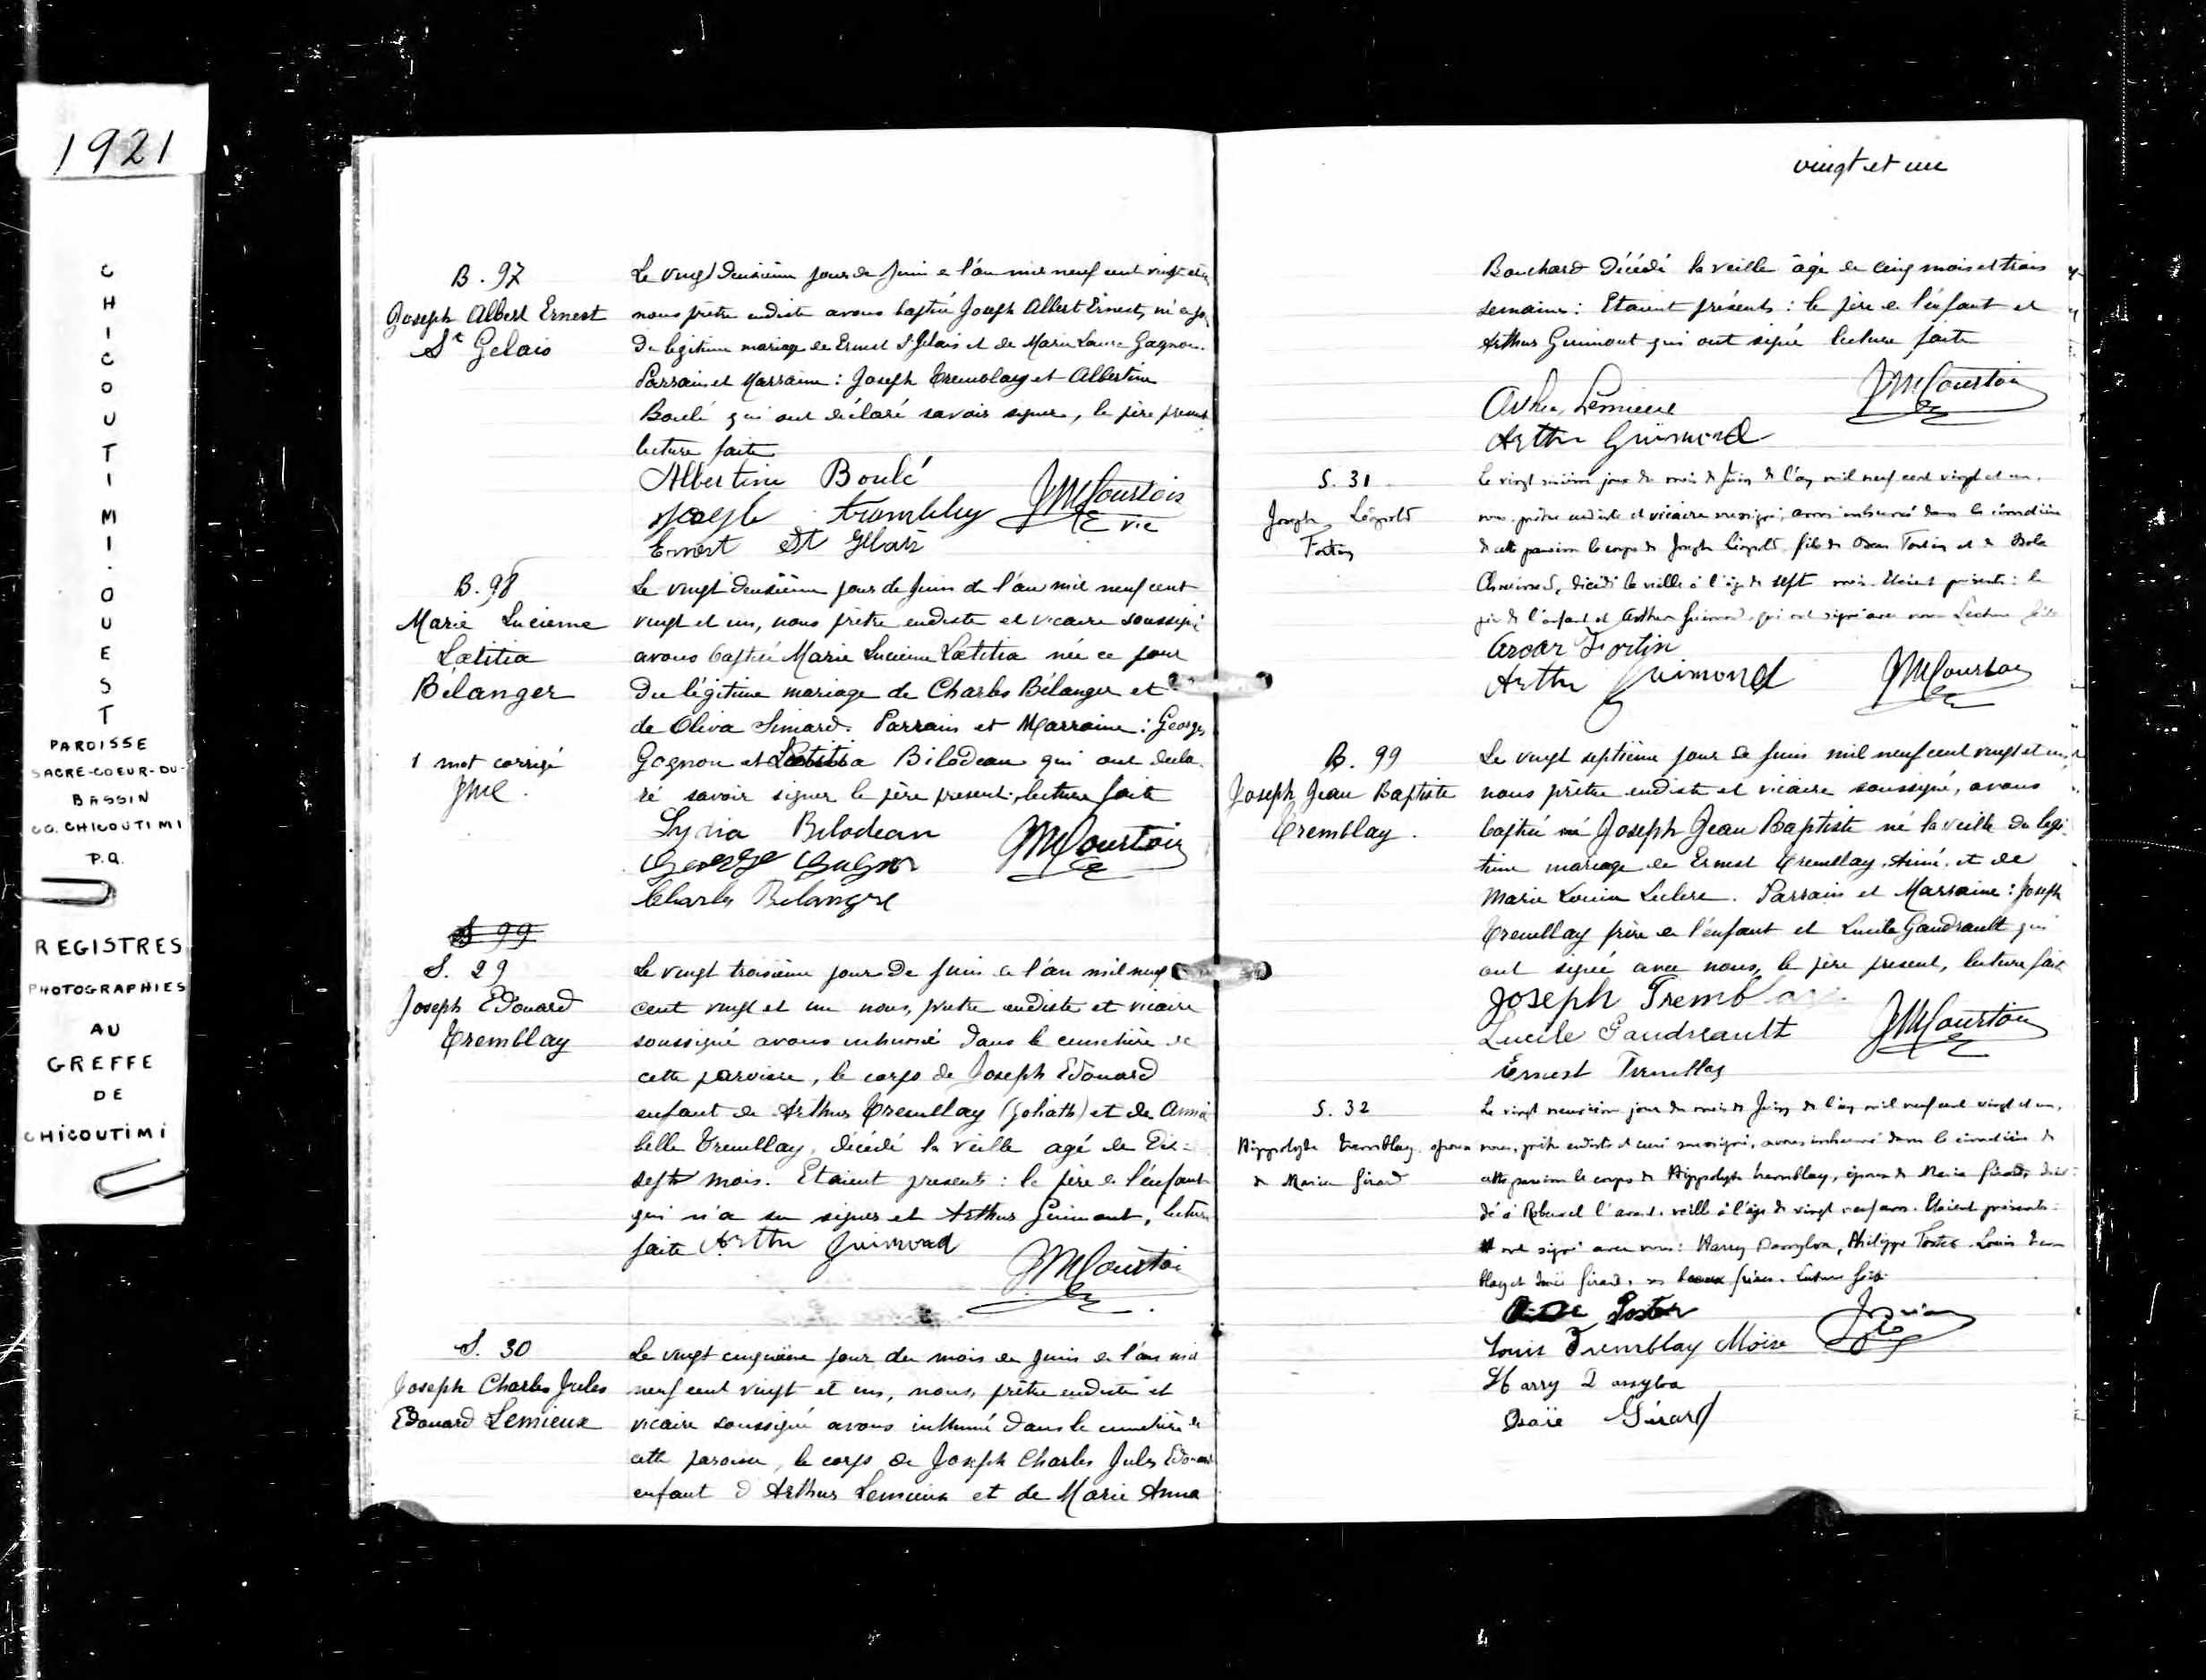 1921
CHICOUTIMI.OUEST
PAROISSE
SACRE-COEUR-DU-
BASSIN
CO. CHICOUTIMI
P.Q.
REGISTRES
PHOTOGRAPHIES
AU
GREFFE
DE
CHICOUTIMI
B. 97
Joseph Albert Ernest
St Gelais
Le vingt deuxième jour de Juin de l'an mil neuf cent vingt et un
nous prêtre eudiste avons baptisé Joseph Albert Ernest, né ce jour
du légitime mariage de Ernest St Gelais et de Marie Laure Gagnon.
Parrain et Marraine : Joseph Tremblay et Albertine
Boulé qui ont déclaré savoir signer, le père present
lecture faite
Albertine Boulé
Joseph Trembley JMCourtois
vic
Ernest St Gelais
B. 98
Marie Lucienne
Lætitia
Bélanger
1 mot corrigé
JMC.
Le vingt deuxième jour de Juin de l'an mil neuf cent
vingt et un, nous prêtre eudiste et vicaire soussigné
avons baptisé Marie Lucienne Lætitia née ce jour
du légitime mariage de Charles Bélanger et
de Oliva Simard. Parrain et Marraine : Georges
Gagnon et Bilodeau qui ont décla-
ré savoir signer le père present, lecture faite
Lydia Bilodeau JMCourtois
George Gagnon
Charles Belanger
S 99
S. 29
Joseph Edouard
Tremblay
Le vingt troisième jour de Juin de l'an mil neuf
cent vingt et un nous, pretre eudiste et vicaire
soussigné avons inhumé dans le cimetière de
cette paroisse, le corps de Joseph Edouard
enfant de Arthur Tremblay (Goliath) et de Anna
belle Tremblay, décédé la veille agé de dix-
sept mois. Etaient presents : le père de l'enfant
qui n'a su signer et Arthur Guimont, lecture
faite Arthur Guimond
JMCourtois
S. 30
Joseph Charles Jules
Edouard Lemieux
Le vingt cinquième jour du mois de Juin de l'an mil
neuf cent vingt et un, nous, prêtre eudiste et
vicaire soussigné avons inhumé dans le cimetière de
cette paroisse, le corps de Joseph Charles Jules Edouard
enfant d'Arthur Lemieux et de Marie Anna
vingt et un
Bouchard décédé la veille âgé de cinq mois et trois
semaines : Etaient présents : le père de l'enfant et
Arthur Guimont qui ont signé lecture faite
Lemieux JMCourtois
Arthur Guimond
S. 31
Joseph Léopold
Fortin
Le vingt sixième jour du mois de Juin de l'an mil neuf cent vingt et un,
nous, prêtre eudiste et vicaire soussigné, avons inhumé dans le cimetière
de cette paroisse le corps de Joseph Léopold fils de Oscar Fortin et de
décédé la veille à l'âge de sept mois. Etaient présents : le
père de l'enfant et Arthur Guimond, qui ont signé avec nous. Lecture faite
Fortin
Arthur Guimond JMCourtois
B. 99
Joseph Jean Baptiste
Tremblay.
Le vingt septième jour de Juin mil neuf cent vingt et un,
nous prêtre eudiste et vicaire soussigné, avons
baptisé né Joseph Jean Baptiste né la veille du légi-
time mariage de Ernest Tremblay Aimé, et de
Marie Louise Leclerc. Parrain et Marraine : Joseph
Tremblay frère de l'enfant et Lucile Gaudreault qui
ont signé avec nous, le père present, lecture faite
Joseph Tremblay
Lucile Gaudreault JMCourtois
Ernest Tremblay
S. 32
Hippolyte Tremblay, époux
de Maria Girard
Le vingt neuvième jour du mois de Juin de l'an mil neuf cent vingt et un,
nous, prêtre eudiste et curé soussigné, avons inhumé dans le cimetière de
cette paroisse le corps de Hippolyte Tremblay, époux de Maria Girard, décé-
dé à Roberval l'avant-veille à l'âge de vingt neuf ans. Etaient présents
et ont signé avec nous : Harry Dassylva, Philippe Foster, Louis Trem
blay et Isaïe Girard, ses beaux frères. Lecture faite.
Foster
Louis Tremblay Moïse
Harry Dassylva
Isaïe Girard